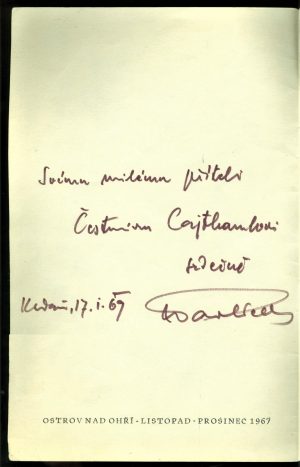 Svému milému příteli
Čestmíru Cajthamlovi
srdečně
17.I.69
OSTROV NAD OHŘÍ - LISTOPAD - PROSINEC 1967